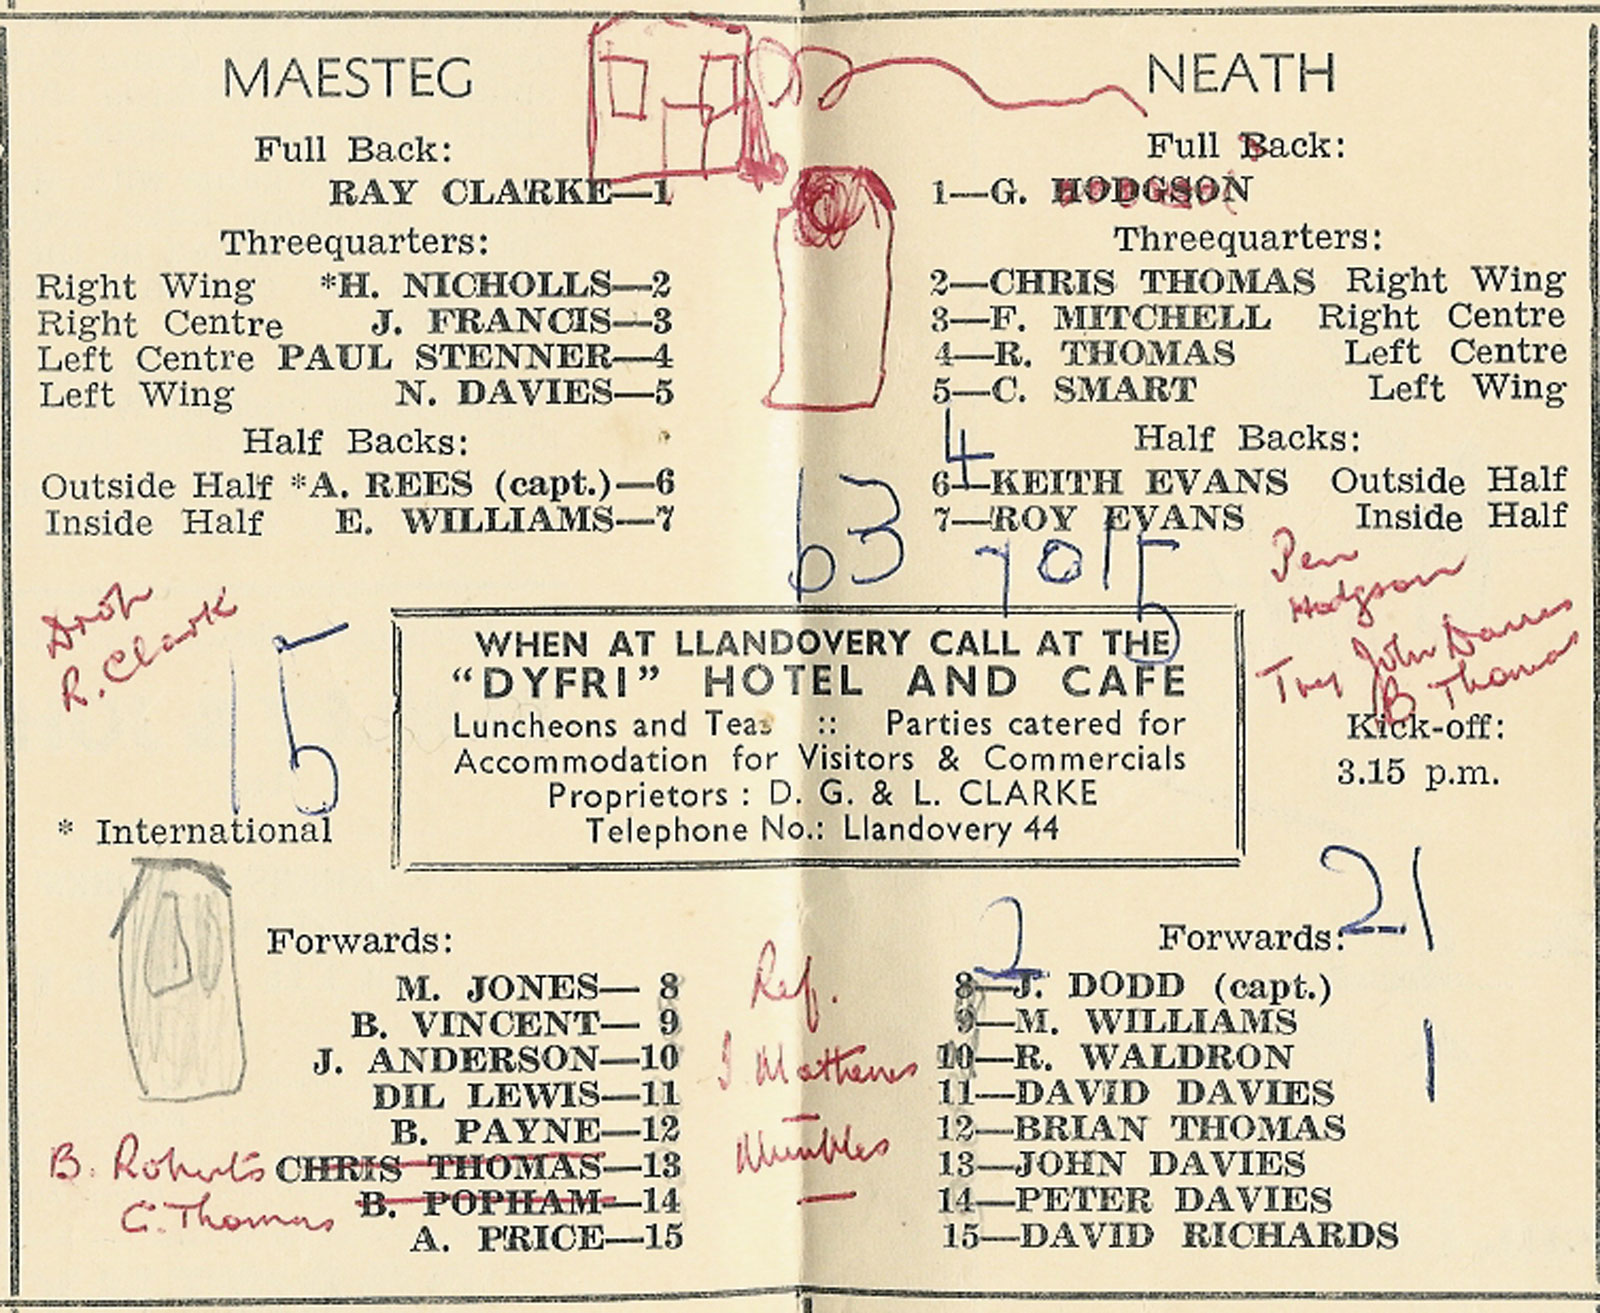 MAESTEG
Full Back:
RAY CLARKE—1
Threequarters:
Right Wing *H. NICHOLLS—2
Right Centre J. FRANCIS—3
Left Centre PAUL STENNER—4
Left Wing N. DAVIES—5
Half Backs:
Outside Half *A. REES (capt.)—6
Inside Half E. WILLIAMS—7
NEATH
Full Back:
1—G. HODGSON
Threequarters:
2—CHRIS THOMAS Right Wing
3—F. MITCHELL Right Centre
4—R. THOMAS Left Centre
5—C. SMART Left Wing
Half Backs:
4
6—KEITH EVANS Outside Half
7—ROY EVANS Inside Half
63
Drop
R. Clark
15
Pen
Hodgson
Try John Davies
B Thomas
WHEN AT LLANDOVERY CALL AT THE
“DYFRI” HOTEL AND CAFE
Luncheons and Teas :: Parties catered for
Accommodation for Visitors & Commercials
Proprietors : D. G. & L. CLARKE
Telephone No.: Llandovery 44
Kick-off:
3.15 p.m.
* International
Forwards:
M. JONES— 8
B. VINCENT— 9
J. ANDERSON—10
DIL LEWIS—11
B. PAYNE—12
B. Roberts CHRIS THOMAS—13
C. Thomas B. POPHAM—14
A. PRICE—15
Ref.
Mathews
Mumbles
21
2
Forwards:
8—J. DODD (capt.)
9—M. WILLIAMS
10—R. WALDRON
1
11—DAVID DAVIES
12—BRIAN THOMAS
13—JOHN DAVIES
14—PETER DAVIES
15—DAVID RICHARDS